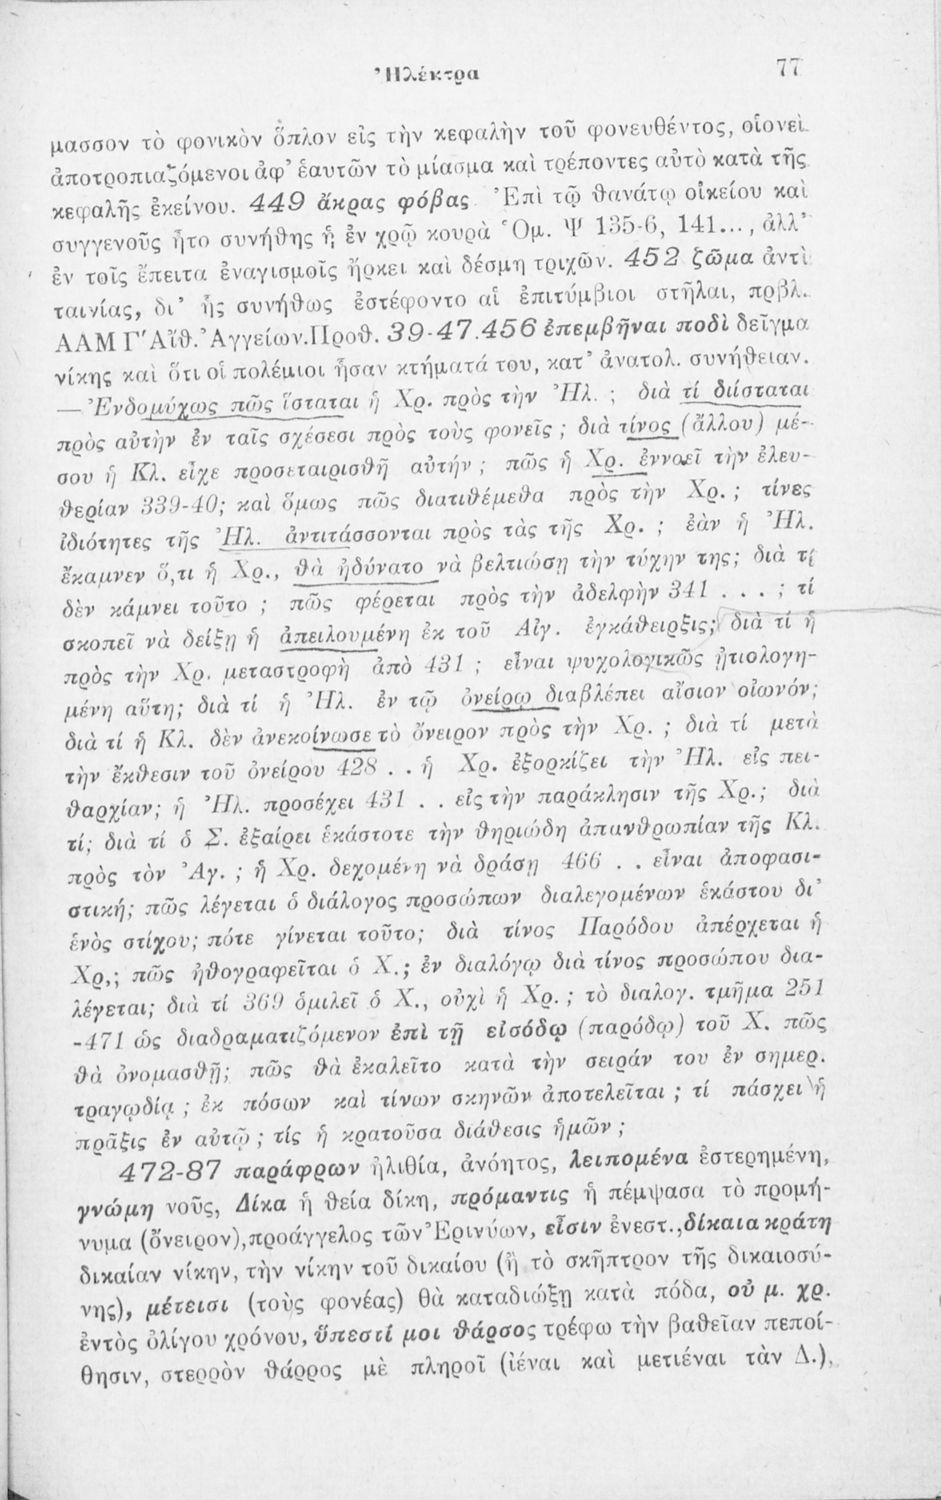 Ἠλέκτρα 77
μασσον τὸ φονικὸν ὅπλον εἰς τὴν κεφαλὴν τοῦ φονευθέντος, οἱονεὶ
ἀποτροπιαζόμενοι ἀφ’ ἑαυτῶν τὸ μίασμα καὶ τρέποντες αὐτὸ κατὰ τῆς
κεφαλῆς ἐκείνου. 449 ἄκρας φόβας Ἐπὶ τῷ θανάτῳ οἰκείου καὶ
συγγενοῦς ἦτο συνήθης ἡ ἐν χρῷ κουρὰ Ὅμ. Ψ 135-6, 141..., ἀλλ’
ἐν τοῖς ἔπειτα ἐναγισμοῖς ἤρκει καὶ δέσμη τριχῶν. 452 ζῶμα ἀντὶ
ταινίας, δι’ ἧς συνήθως ἐστέφοντο αἱ ἐπιτύμβιοι στῆλαι, πρβλ.
ΑΑΜ Γ′ Αἴθ. Ἀγγείων. Προθ. 39-47. 456 ἐπεμβῆναι ποδὶ δεῖγμα
νίκης καὶ ὅτι οἱ πολέμιοι ἦσαν κτήματά του, κατ’ ἀνατολ. συνήθειαν.
— Ἐνδομύχως πῶς ἵσταται ἡ Χρ. πρὸς τὴν Ἠλ. ; διὰ τί διίσταται
πρὸς αὐτὴν ἐν ταῖς σχέσεσι πρὸς τοὺς φονεῖς ; διὰ τίνος (ἄλλου) μέ-
σου ἡ Κλ. εἶχε προσεταιρισθῆ αὐτήν ; πῶς ἡ Χρ. ἐννοεῖ τὴν ἐλευ-
θερίαν 339-40; καὶ ὅμως πῶς διατιθέμεθα πρὸς τὴν Χρ. ; τίνες
ἰδιότητες τῆς Ἠλ. ἀντιτάσσονται πρὸς τὰς τῆς Χρ. ; ἐὰν ἡ Ἠλ.
ἔκαμνεν ὅ,τι ἡ Χρ., θὰ ἠδύνατο νὰ βελτιώσῃ τὴν τύχην της; διὰ τί
δὲν κάμνει τοῦτο ; πῶς φέρεται πρὸς τὴν ἀδελφὴν 341 . . . ; τί
σκοπεῖ νὰ δείξῃ ἡ ἀπειλουμένη ἐκ τοῦ Αἰγ. ἐγκάθειρξις; διὰ τί ἡ
πρὸς τὴν Χρ. μεταστροφὴ ἀπὸ 431 ; εἶναι ψυχολογικῶς ᾐτιολογη-
μένη αὕτη; διὰ τί ἡ Ἠλ. ἐν τῷ ὀνείρῳ διαβλέπει αἴσιον οἰωνόν;
διὰ τί ἡ Κλ. δὲν ἀνεκοίνωσε τὸ ὄνειρον πρὸς τὴν Χρ. ; διὰ τί μετὰ
τὴν ἔκθεσιν τοῦ ὀνείρου 428 . . ἡ Χρ. ἐξορκίζει τὴν Ἠλ. εἰς πει-
θαρχίαν; ἡ Ἠλ. προσέχει 431 . . εἰς τὴν παράκλησιν τῆς Χρ.; διὰ
τί; διὰ τί ὁ Σ. ἐξαίρει ἑκάστοτε τὴν θηριώδη ἀπανθρωπίαν τῆς Κλ.
πρὸς τὸν Ἀγ. ; ἡ Χρ. δεχομένη νὰ δράσῃ 466 . . εἶναι ἀποφασι-
στική; πῶς λέγεται ὁ διάλογος προσώπων διαλεγομένων ἑκάστου δι’
ἑνὸς στίχου; πότε γίνεται τοῦτο; διὰ τίνος Παρόδου ἀπέρχεται ἡ
Χρ,; πῶς ἠθογραφεῖται ὁ Χ.; ἐν διαλόγῳ διὰ τίνος προσώπου δια-
λέγεται; διὰ τί 369 ὁμιλεῖ ὁ Χ., οὐχὶ ἡ Χρ. ; τὸ διαλογ. τμῆμα 251
-471 ὡς διαδραματιζόμενον ἐπὶ τῇ εἰσόδῳ (παρόδῳ) τοῦ Χ. πῶς
θὰ ὀνομασθῇ; πῶς θὰ ἐκαλεῖτο κατὰ τὴν σειράν του ἐν σημερ.
τραγῳδίᾳ ; ἐκ πόσων καὶ τίνων σκηνῶν ἀποτελεῖται ; τί πάσχει ἡ
πρᾶξις ἐν αὐτῷ ; τίς ἡ κρατοῦσα διάθεσις ἡμῶν ;
472-87 παράφρων ἠλιθία, ἀνόητος, λειπομένα ἐστερημένη,
γνώμη νοῦς, Δίκα ἡ θεία δίκη, πρόμαντις ἡ πέμψασα τὸ προμή-
νυμα (ὄνειρον), προάγγελος τῶν Ἐρινύων, εἶσιν ἐνεστ., δίκαια κράτη
δικαίαν νίκην, τὴν νίκην τοῦ δικαίου (ἢ τὸ σκῆπτρον τῆς δικαιοσύ-
νης), μέτεισι (τοὺς φονέας) θὰ καταδιώξῃ κατὰ πόδα, οὐ μ. χρ.
ἐντὸς ὀλίγου χρόνου, ὕπεστί μοι θάρσος τρέφω τὴν βαθεῖαν πεποί-
θησιν, στερρὸν θάρρος μὲ πληροῖ (ἰέναι καὶ μετιέναι τὰν Δ.),